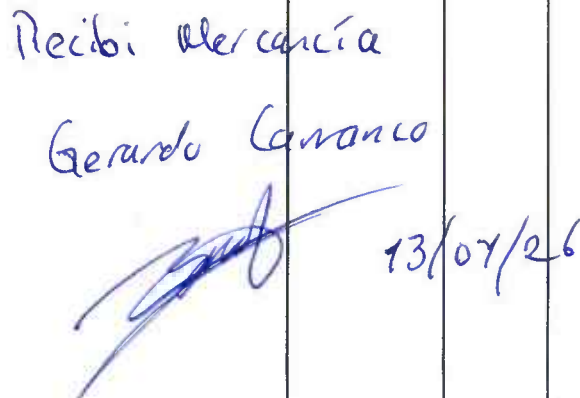 Recibi Mercancía
Gerardo Carranco
13/07/26